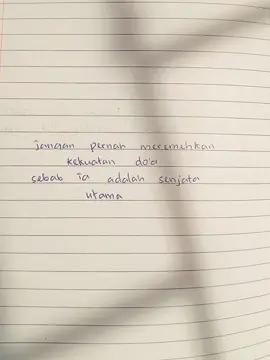 jangan pernah meremehkan
kekuatan do'a
sebab ia adalah senjata
utama